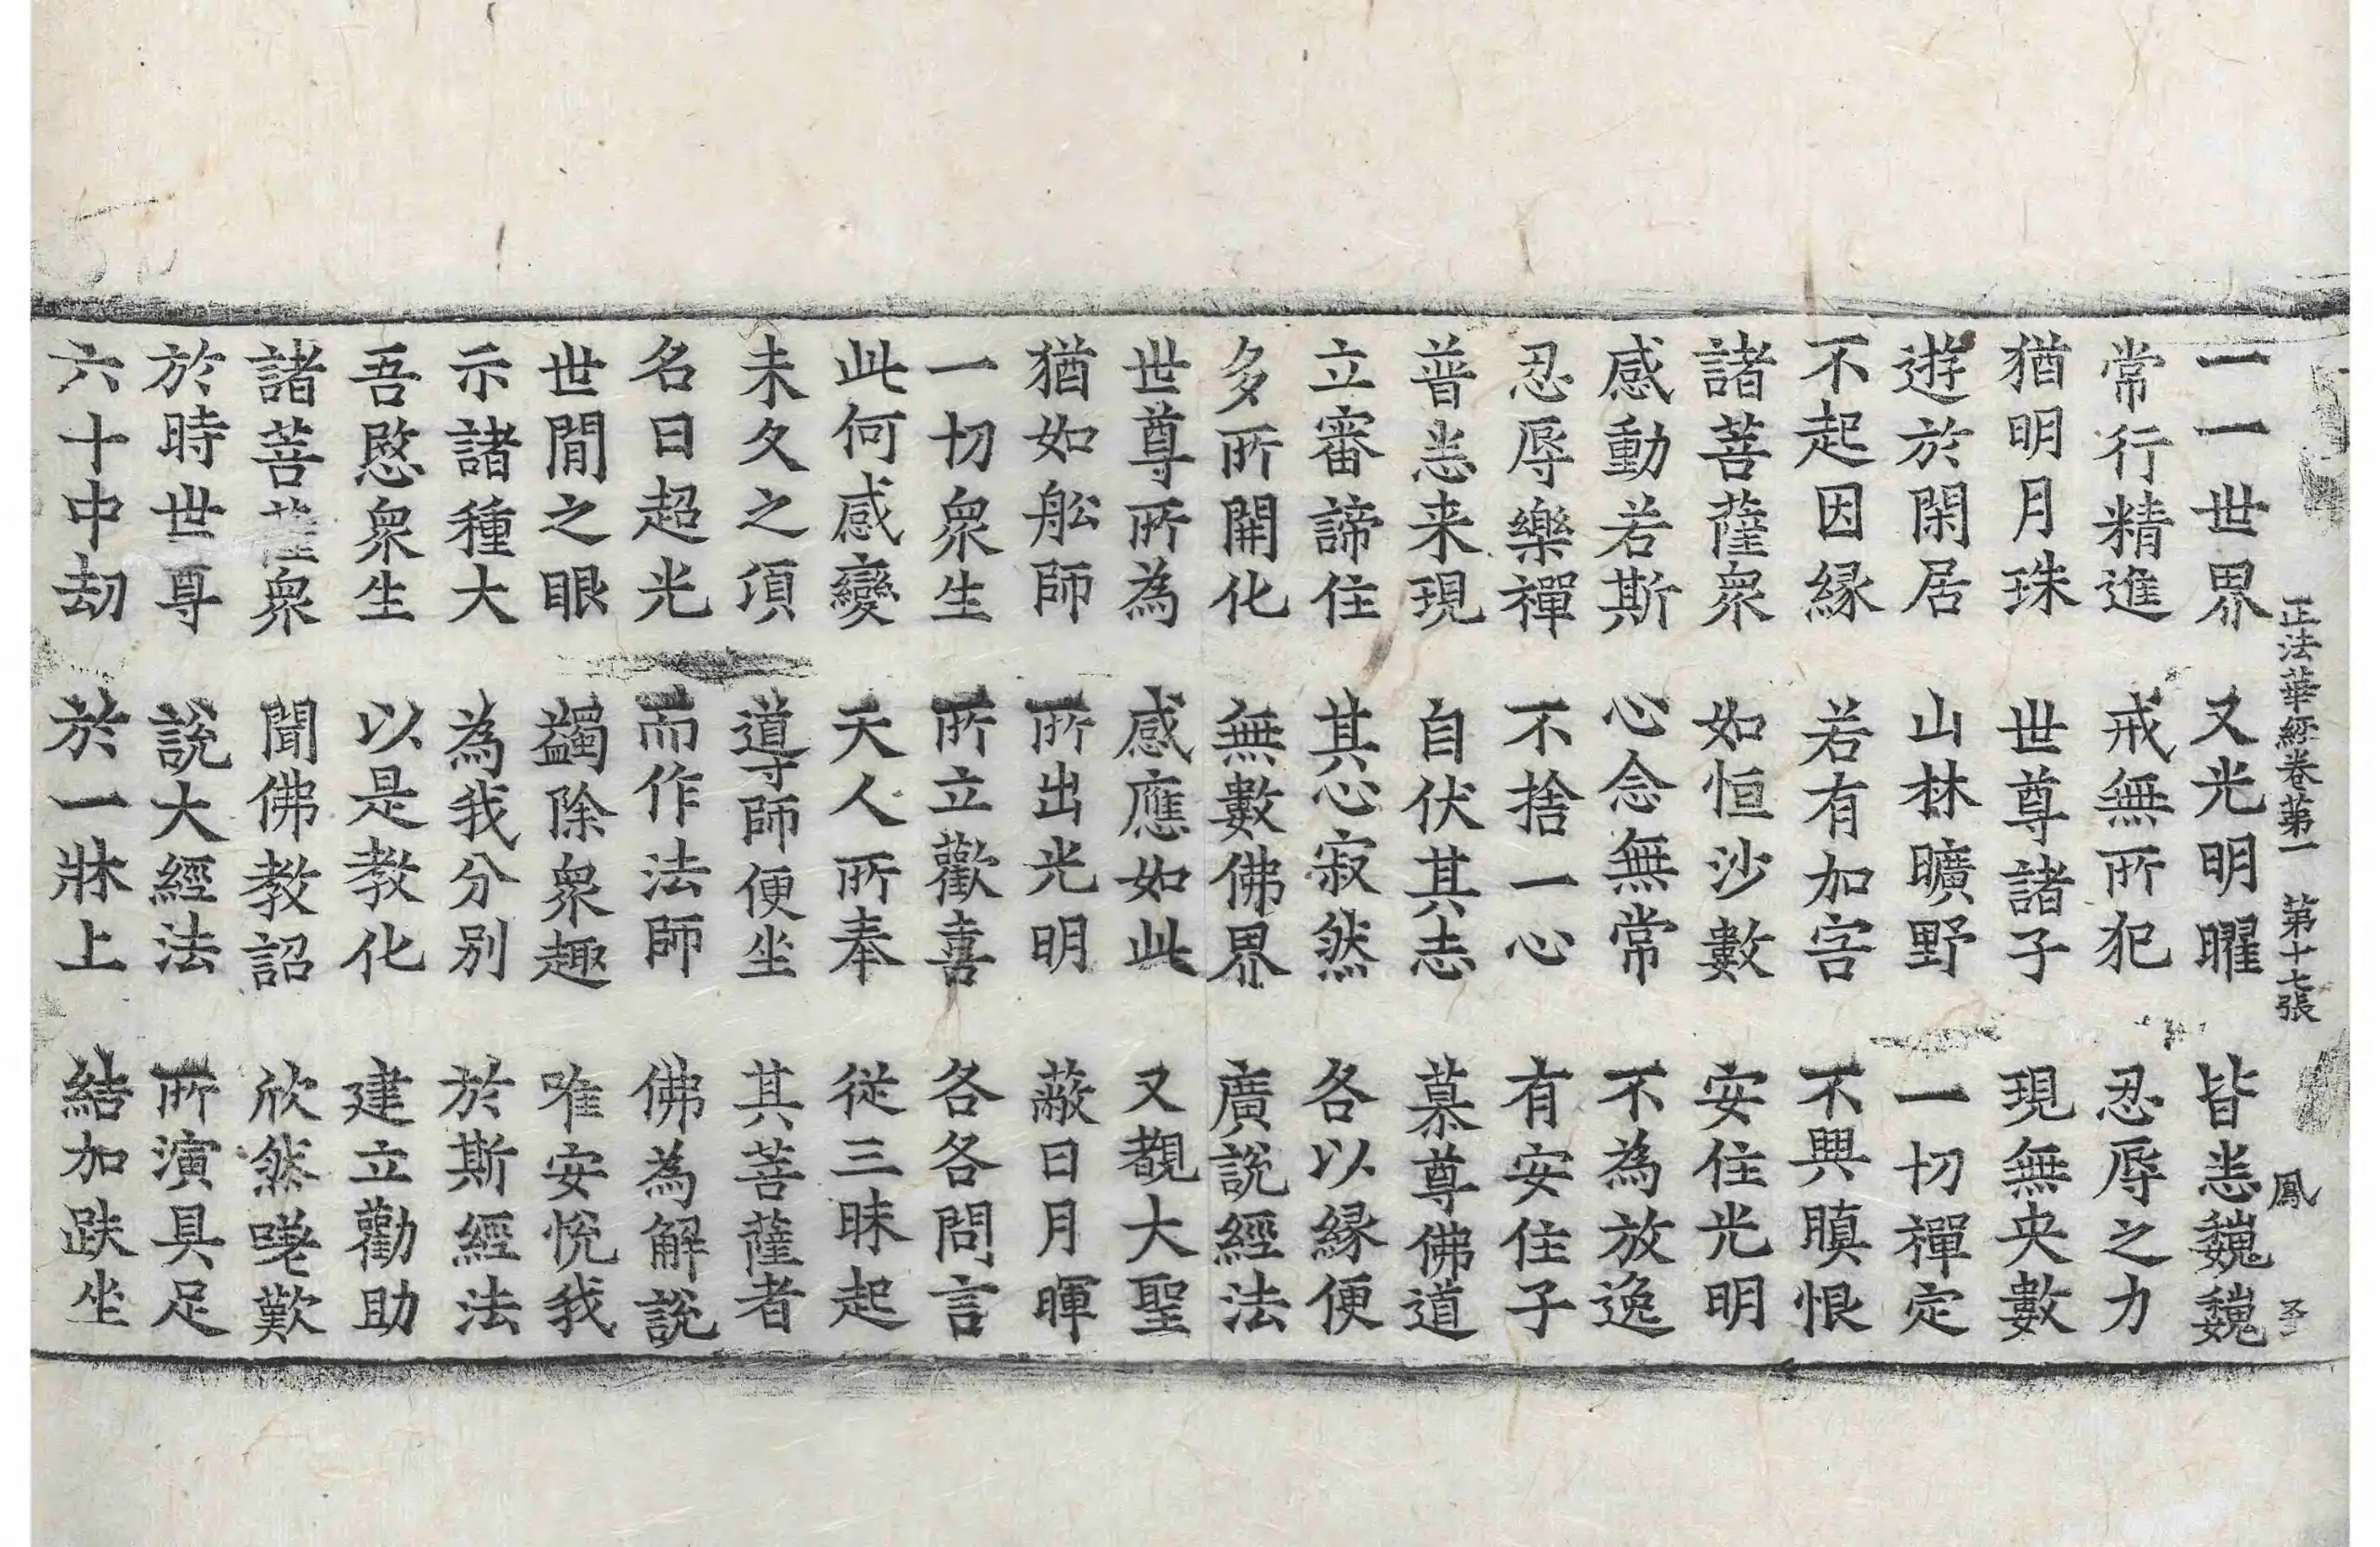 正法華經卷第一 第十七張 鳳
一一世界 又光明曜 皆悉巍巍
常行精進 戒無所犯 忍辱之力
猶明月珠 世尊諸子 現無央數
遊於閑居 山林曠野 一切禪定
不起因緣 若有加害 不興瞋恨
諸菩薩眾 如恒沙數 安住光明
感動若斯 心念無常 不為放逸
忍辱樂禪 不捨一心 有安住子
普悉来現 自伏其志 慕尊佛道
立審諦住 其心寂然 各以緣便
多所開化 無數佛界 廣說經法
世尊所為 感應如此 又覩大聖
猶如舩師 所出光明 蔽日月暉
一切眾生 所立歡喜 各各問言
此何感變 天人所奉 從三昧起
未久之頃 導師便坐 其菩薩者
名曰超光 而作法師 佛為解說
世間之眼 蠲除眾趣 唯安悅我
示諸種大 為我分別 於斯經法
吾愍眾生 以是教化 建立勸助
諸菩薩眾 聞佛教詔 欣然嗟歎
於時世尊 說大經法 所演具足
六十中劫 於一牀上 結加趺坐